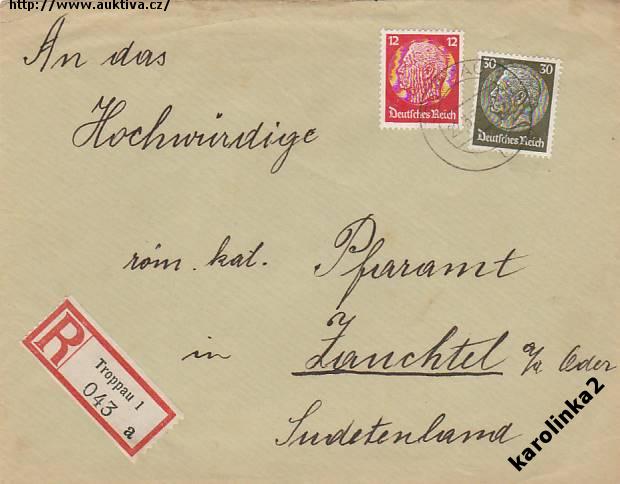 http://www.auktiva.cz/
An das
12 12
Deutsches Reich
30 30
Deutsches Reich
Hochwürdige
röm. kat. Pfaramt
in Zauchtel a/a Oder
Sudetenland
R
Troppau 1
043
a
karolinka2